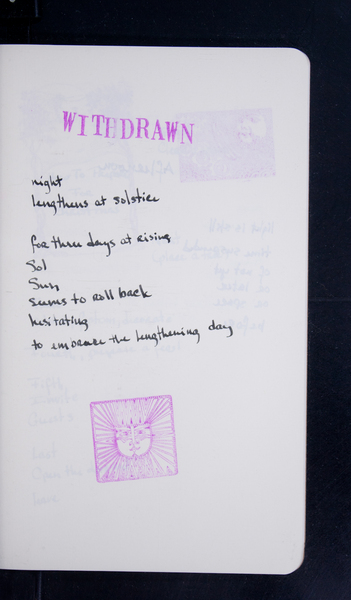 WITHDRAWN
night
lengthens at solstice
for three days at rising
Sol
Sun
seems to roll back
hesitating
to embrace the lengthening day